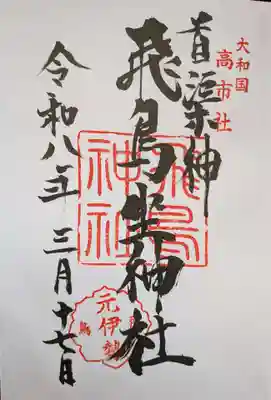 大和国
高市社
首渠神
飛鳥坐神社
飛鳥神社
元伊勢
令和八年三月十七日